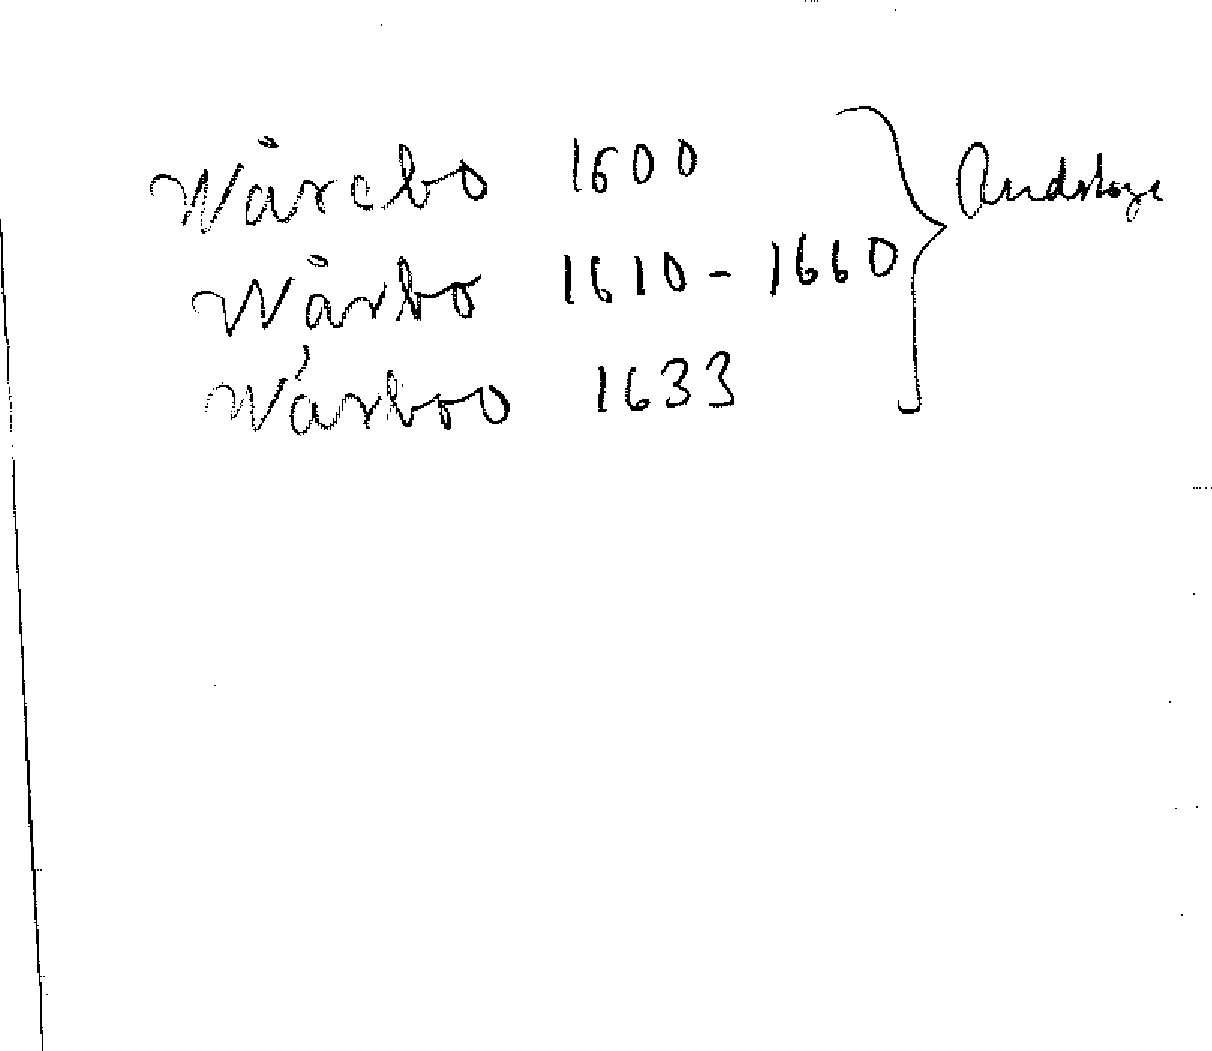 Wårebo 1600
Wårbo 1610 - 1660
Wårboo 1633